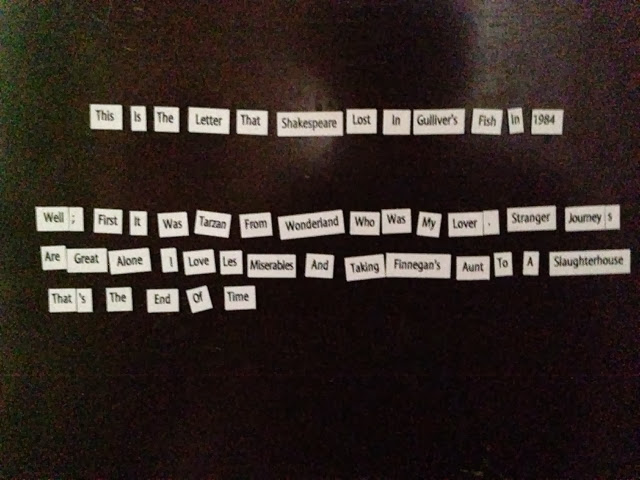 This Is The Letter That Shakespeare Lost In Gulliver's Fish In 1984
Well ; First It Was Tarzan From Wonderland Who Was My Lover . Stranger Journey s
Are Great Alone I Love Les Miserables And Taking Finnegan's Aunt To A Slaughterhouse
That 's The End Of Time